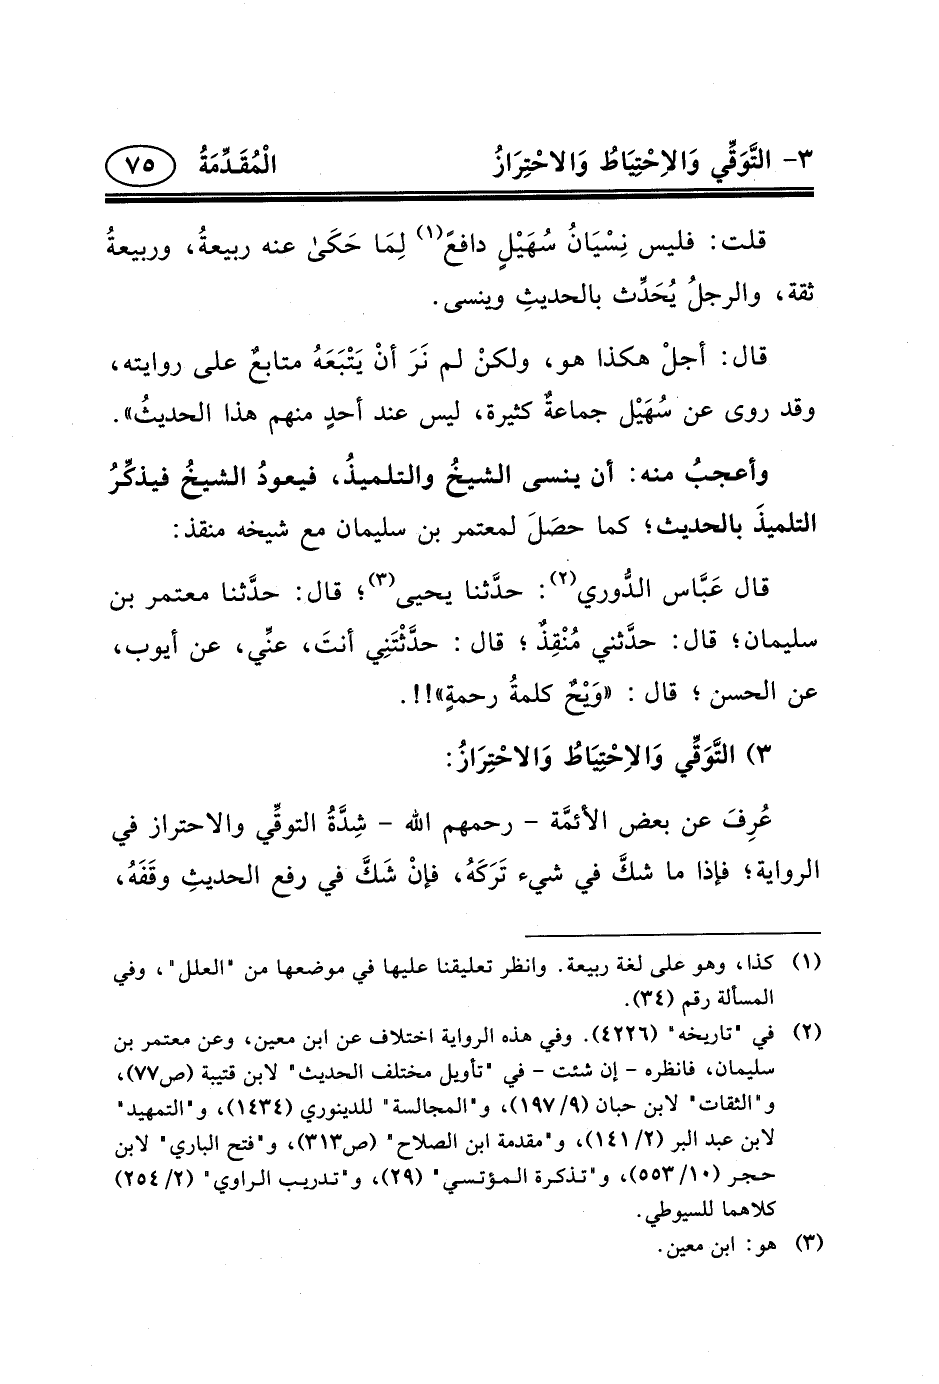 ٣- التَّوَقِّي وَالِاحْتِيَاطُ وَالِاحْتِرَازُ الْمُقَدِّمَةُ ٧٥
قلت: فليس نِسْيَانُ سُهَيْلٍ دافعً(١) لِمَا حَكَىٰ عنه ربيعةُ، وربيعةُ
ثقة، والرجلُ يُحَدِّث بالحديثِ وينسى.
قال: أجلْ هكذا هو، ولكنْ لم نَرَ أنْ يَتْبَعَهُ متابعٌ على روايته،
وقد روى عن سُهَيْل جماعةٌ كثيرة، ليس عند أحدٍ منهم هذا الحديثُ».
وأعجبُ منه: أن ينسى الشيخُ والتلميذُ، فيعودُ الشيخُ فيذكِّرُ
التلميذَ بالحديث؛ كما حصَلَ لمعتمر بن سليمان مع شيخه منقذ:
قال عَبَّاس الدُّوري(٢): حدَّثنا يحيى(٣)؛ قال: حدَّثنا معتمر بن
سليمان؛ قال: حدَّثني مُنْقِذٌ؛ قال: حدَّثْتَنِي أنتَ، عنِّي، عن أيوب،
عن الحسن؛ قال: «وَيْحٌ كلمةُ رحمةٍ»!!.
٣) التَّوَقِّي وَالِاحْتِيَاطُ وَالِاحْتِرَازُ:
عُرِفَ عن بعض الأئمَّة - رحمهم الله - شِدَّةُ التوقِّي والاحتراز في
الرواية؛ فإذا ما شكَّ في شيء تَرَكَهُ، فإنْ شَكَّ في رفع الحديثِ وقَفَهُ،
(١) كذا، وهو على لغة ربيعة. وانظر تعليقنا عليها في موضعها من "العلل"، وفي
المسألة رقم (٣٤).
(٢) في "تاريخه" (٤٢٢٦). وفي هذه الرواية اختلاف عن ابن معين، وعن معتمر بن
سليمان، فانظره - إن شئت - في "تأويل مختلف الحديث" لابن قتيبة (ص٧٧)،
و"الثقات" لابن حبان (٩/ ١٩٧)، و"المجالسة" للدينوري (١٤٣٤)، و"التمهيد"
لابن عبد البر (٢/ ١٤١)، و"مقدمة ابن الصلاح" (ص٣١٣)، و"فتح الباري" لابن
حجر (١٠/ ٥٥٣)، و"تذكرة المؤتسي" (٢٩)، و"تدريب الراوي" (٢/ ٢٥٤)
كلاهما للسيوطي.
(٣) هو: ابن معين.